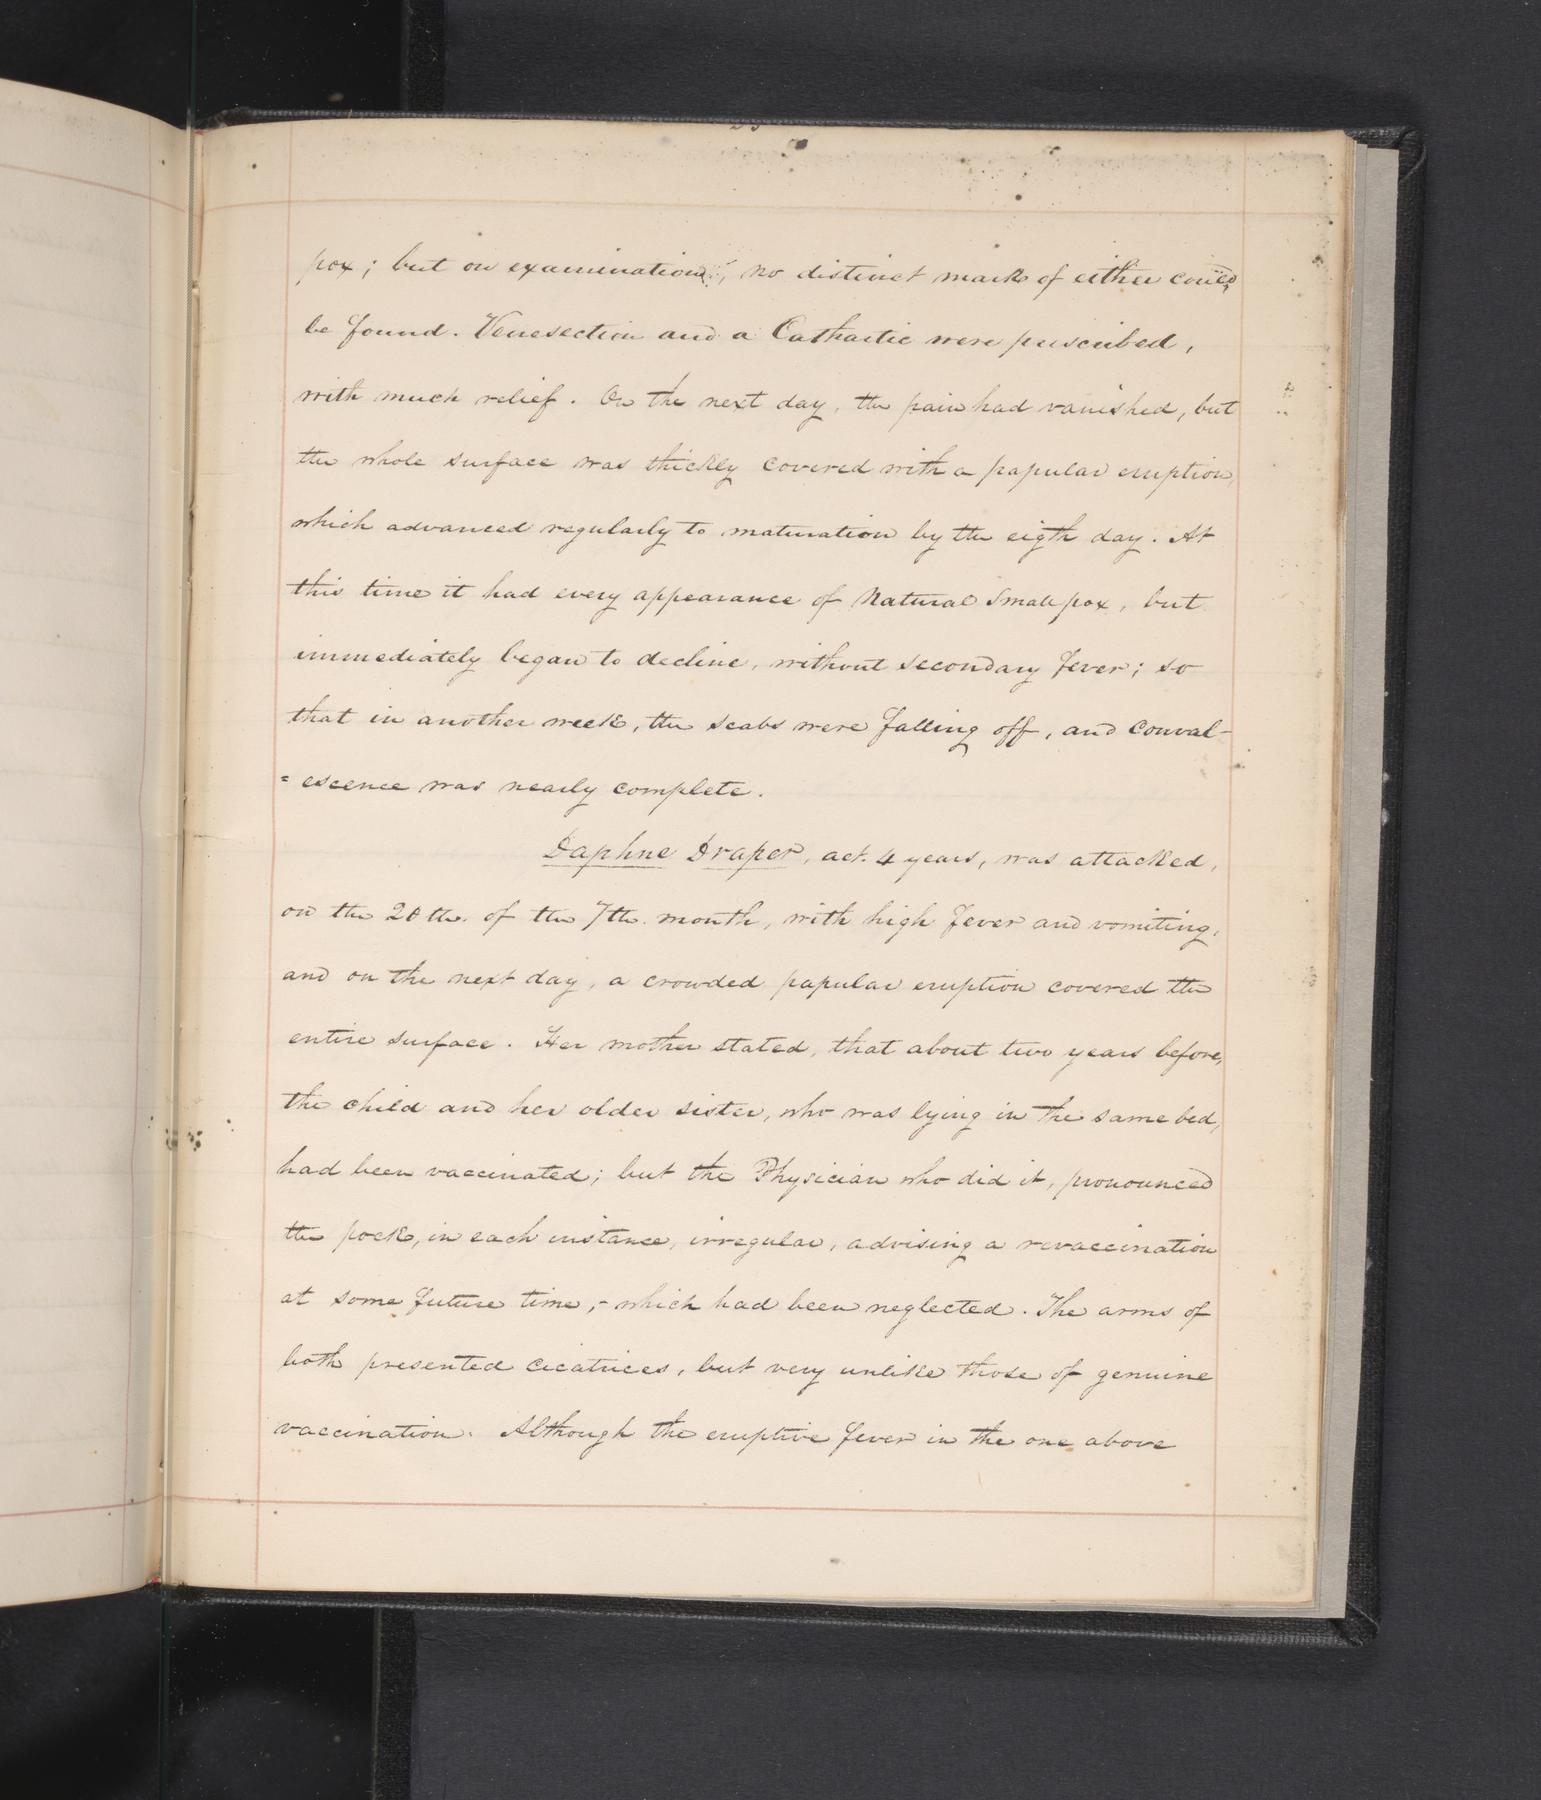 pox; but on examination, no distinct mark of either could
be found. Venesection and a Cathartic were prescribed,
with much relief. On the next day, the pain had vanished, but
the whole surface was thickly covered with a papular eruption,
which advanced regularly to maturation by the eigth day. At
this time it had every appearance of Natural Small pox, but
immediately began to decline, without secondary fever; so
that in another week, the scabs were falling off, and conval-
=escence was nearly complete.
Daphne Draper, aet. 4 years, was attacked,
on the 20th. of the 7th. month, with high fever and vomiting,
and on the next day, a crowded papular eruption covered the
entire surface. Her mother stated, that about two years before,
the child and her older sister, who was lying in the same bed,
had been vaccinated; but the Physician who did it, pronounced
the pock, in each instance, irregular, advising a revaccination
at some future time,- which had been neglected. The arms of
both presented cicatrices, but very unlike those of genuine
vaccination. Although the eruptive fever in the one above